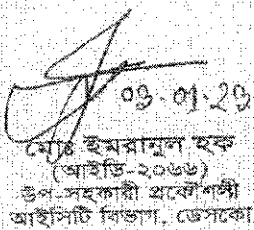 ০৩.০১.২৩
মোঃ ইমরানুল হক
(আইডি-২০৬৬)
উপ-সহকারী প্রকৌশলী
আইসিটি বিভাগ, ডেসকো